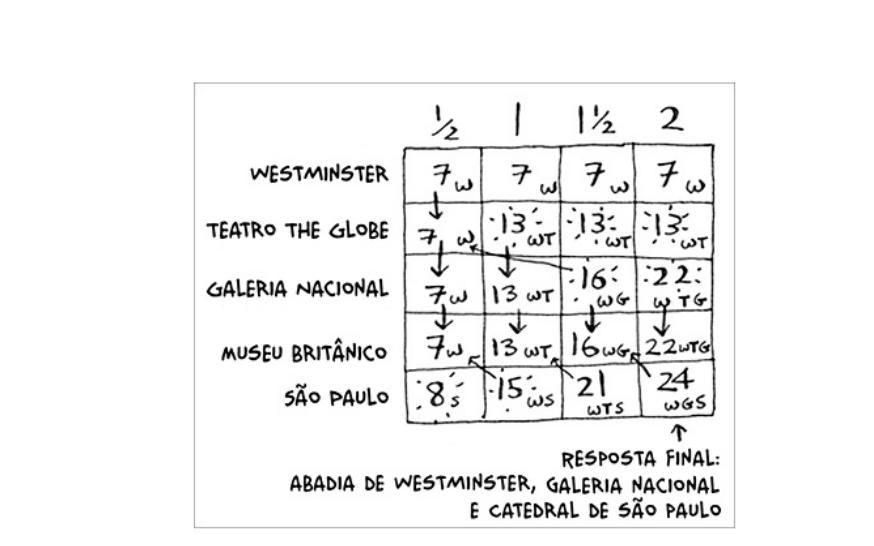 ½ 1 1½ 2
WESTMINSTER 7 W 7 W 7 W 7 W
TEATRO THE GLOBE 7 W 13 WT 13 WT 13 WT
GALERIA NACIONAL 7 W 13 WT 16 WG 22 WTG
MUSEU BRITÂNICO 7 W 13 WT 16 WG 22 WTG
SÃO PAULO 8 S 15 WS 21 WTS 24 WGS
RESPOSTA FINAL:
ABADIA DE WESTMINSTER, GALERIA NACIONAL
E CATEDRAL DE SÃO PAULO